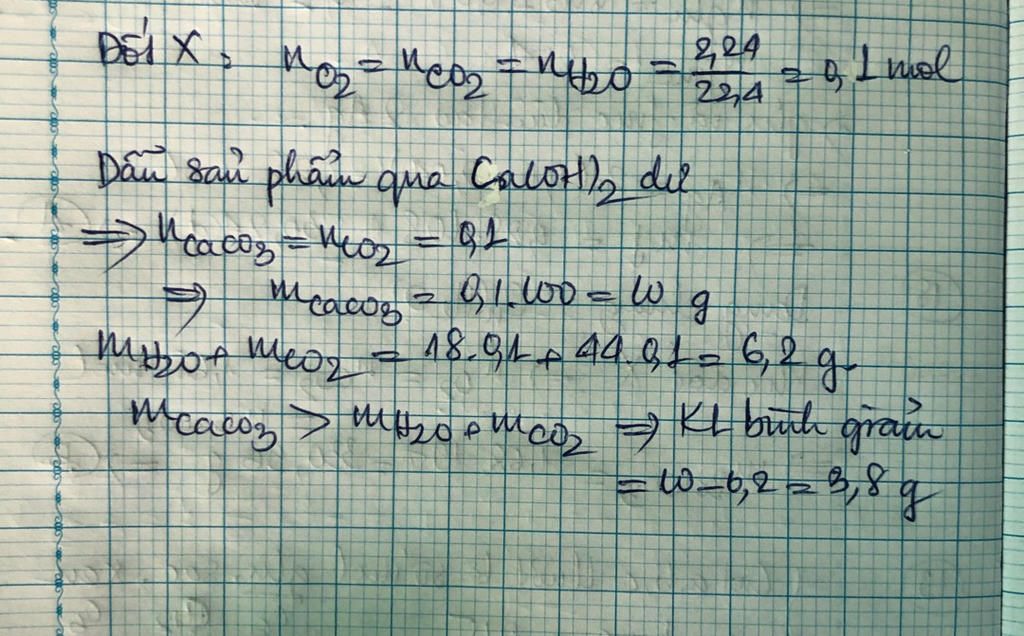 Đốt X: nO2 = nCO2 = nH2O = 2,24/22,4 = 0,1 mol
Dẫn sản phẩm qua Ca(OH)2 dư
⇒ nCaCO3 = nCO2 = 0,1
⇒ mCaCO3 = 0,1.100 = 10 g
mH2O + mCO2 = 18.0,1 + 44.0,1 = 6,2 g
mCaCO3 > mH2O + mCO2 ⇒ KL bình giảm
= 10 - 6,2 = 3,8 g